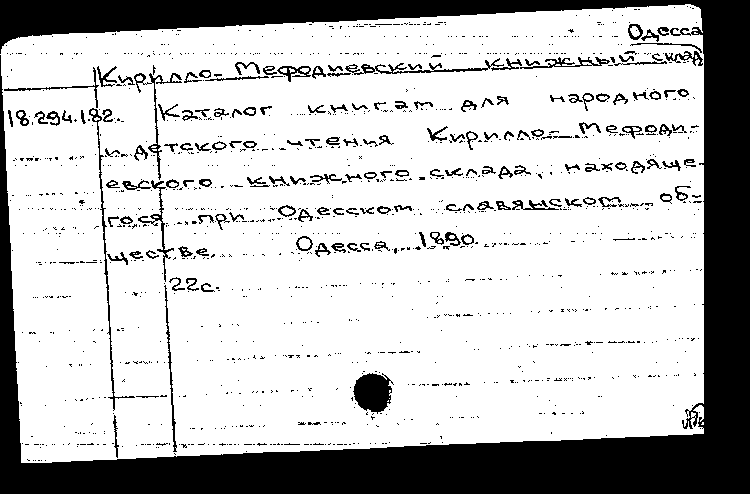 Одесса
Кирилло-Мефодиевский книжный склад
18.294.1.82. Каталог книгам для народного
и детского чтенья Кирилло-Мефоди-
евского книжного склада, находяще-
гося при Одесском славянском об-
ществе. Одесса, 1890.
22с.